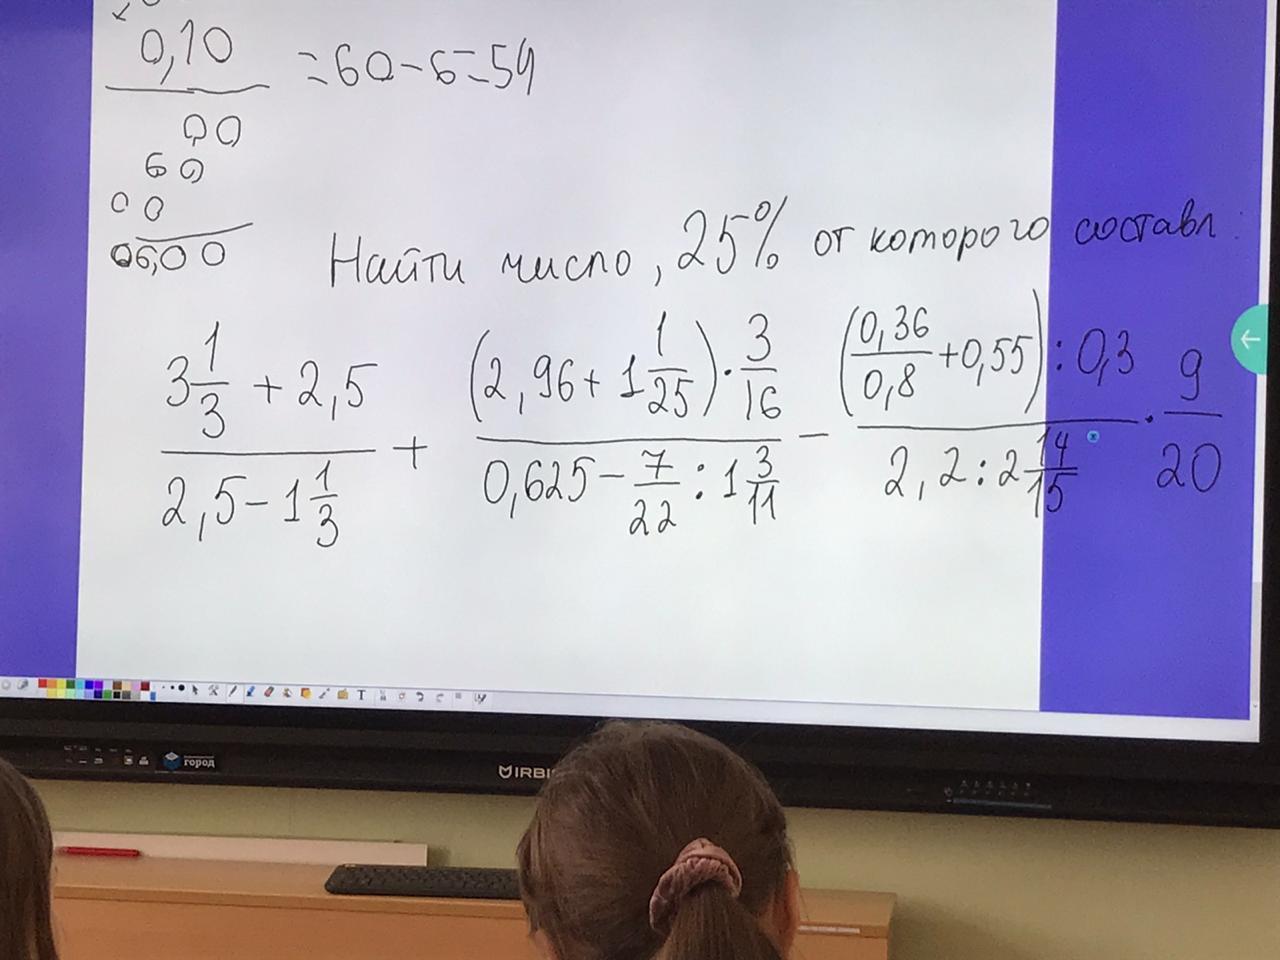 0,10
=60-6=54
00
60
00
06,00
Найти число, 25% от которого составл:
(3 1/3 + 2,5)/(2,5-1 1/3) + ((2,96+1 1/25)·3/16)/(0,625-7/22:1 3/11) - ((0,36/0,8+0,55):0,3)/(2,2:2 14/15)·9/20
T
город
IRBIS